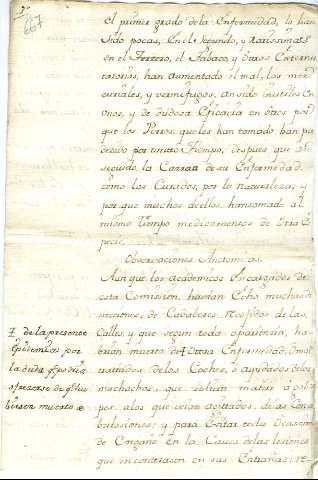 667
el primer grado de la Enfermedad, lo han
sido pocas, En el segundo, y rarissimas
en el tercero, el Tabaco, y otros Esternu-
tatorios, han aumentado el mal, los mer-
curiales, y vermefugos, an sido inutiles En
onos, y de dudosa eficacia en otros por-
que los Perros, que los han tomado han pa-
decido por tiempo, despues que ha
seguido la Carrera de su Enfermedad,
como los Curados, por la Naturaleza, y
por que muchos de ellos, han tomado al
mismo tiempo medicamentos de otra Es-
pecie.
Observaciones Anatomicas.
Aunque los academicos Encargados de
esta Comision, havian Echo muchas di-
secciones, de Cadaberes cogidos de las
Calles, y que segun toda apariencia, ha-
brian muerto de otra Enfermedad, o mal-
tratados de los Coches, o apedreados de los
muchachos, que solian matar a gol-
pes a los que veian agoitados, de las Con-
bulsiones; y para Evitar toda Ocasion
de Engaño En la Causa de las lesiones
que encontrasen en sus Entrañas: re-
de la presente
Epidemia por
la duda que podria
ofrecerse de que hu-
biesen muerto